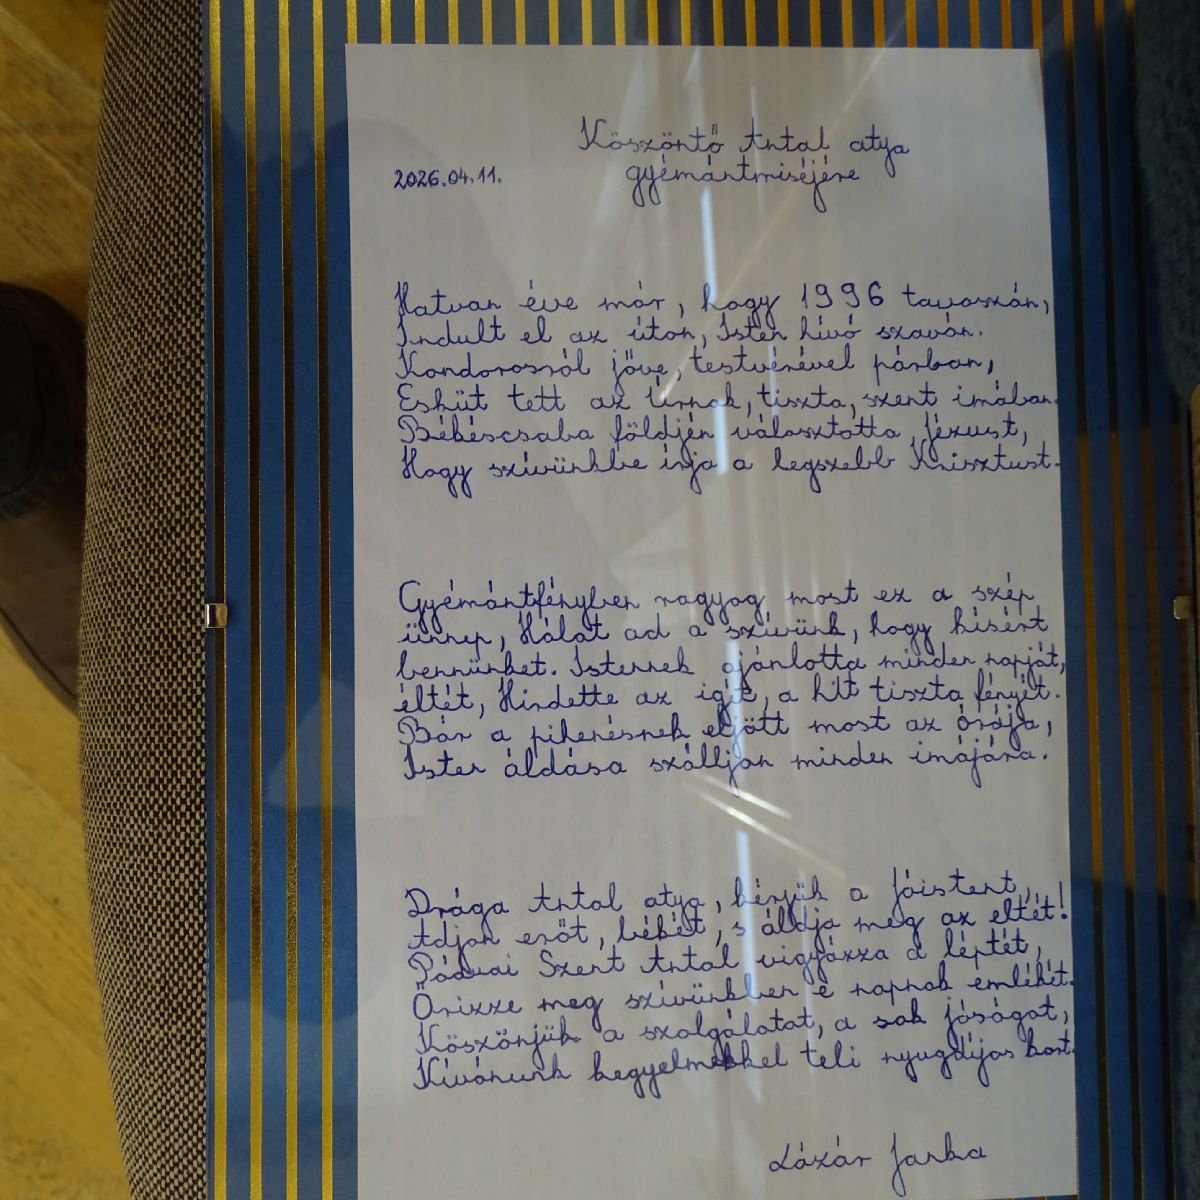 Köszöntő Antal atya
gyémántmiséjére
2026.04.11.
Hatvan éve már, hogy 1996 tavaszán,
Indult el az úton, Isten hívó szaván.
Kondorosról jőve, testvérével párban,
Esküt tett az Úrnak, tiszta, szent imában.
Békéscsaba földjén választotta Jézust,
Hogy szívünkbe írja a legszebb Krisztust.
Gyémántfényben ragyog most ez a szép
ünnep, Hálát ad a szívünk, hogy kísért
bennünket. Istennek ajánlotta minden napját,
éltét, Hirdette az igét, a hit tiszta fényét.
Bár a pihenésnek eljött most az órája,
Isten áldása szálljon minden imájára.
Drága Antal atya, kérjük a Jóistent,
Adjon erőt, békét, s áldja meg az éltét!
Páduai Szent Antal vigyázza a léptét,
Őrizze meg szívünkben e napnak emlékét.
Köszönjük a szolgálatot, a sok jóságot,
Kívánunk kegyelmekkel teli nyugdíjas kort.
Lázár Janka